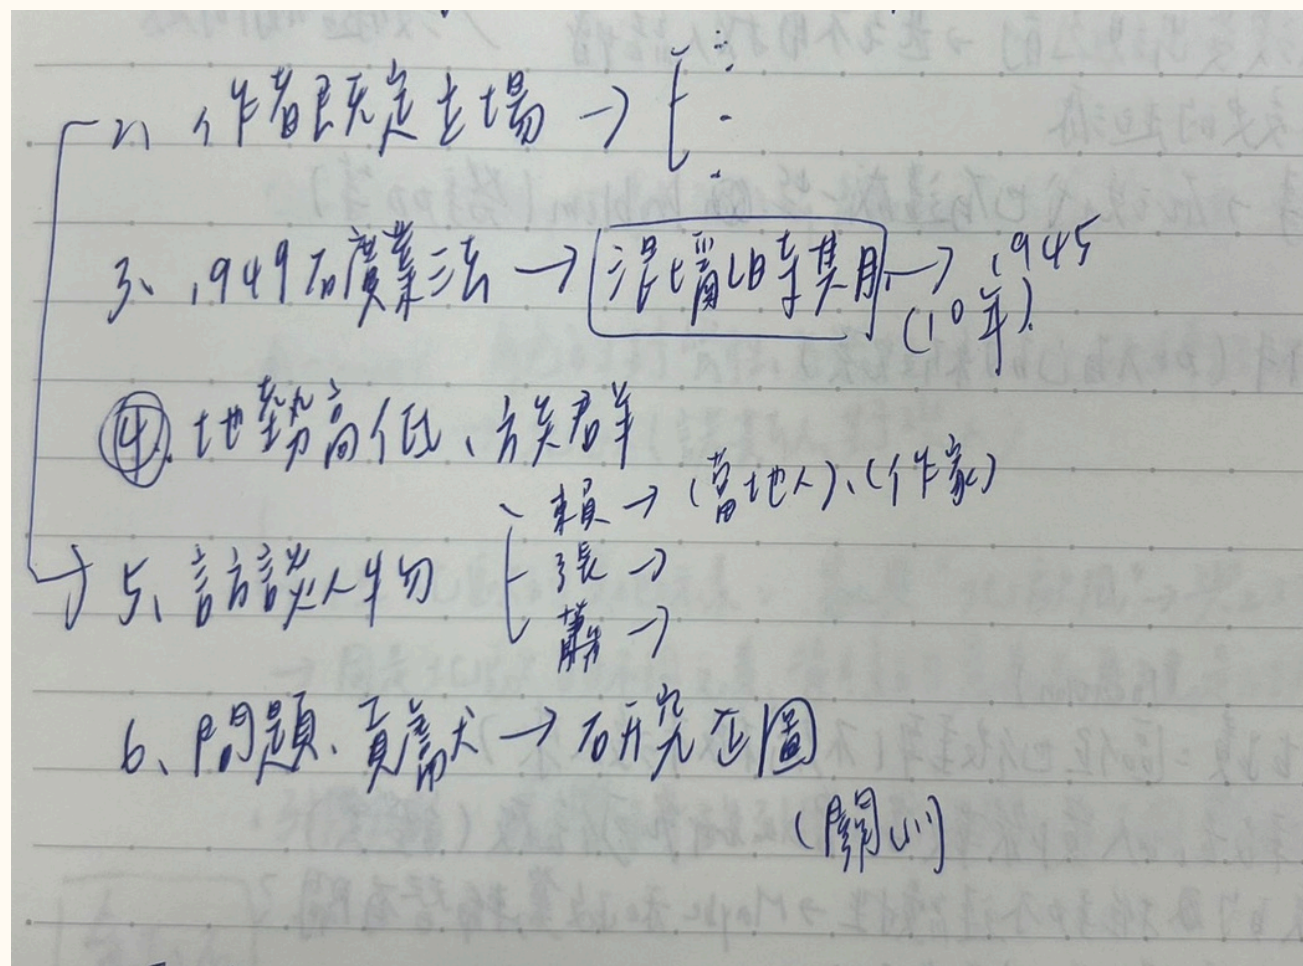 2、作者既定立場 →
3、1949礦業法 → 混亂時期 → 1945
(10年)
④ 地勢高低、族群
賴 → (當地人)、(作家)
5、訪談人物 張 →
蕭 →
6、問題、貢獻 → 研究企圖
(關川)